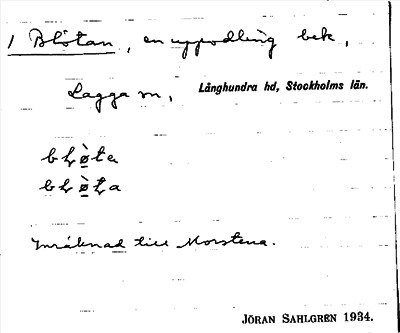 1 Blötan, en uppodling bek,
Lagga sn, Långhundra hd, Stockholms län.
Inräknad till Morstena.
JÖRAN SAHLGREN 1934.